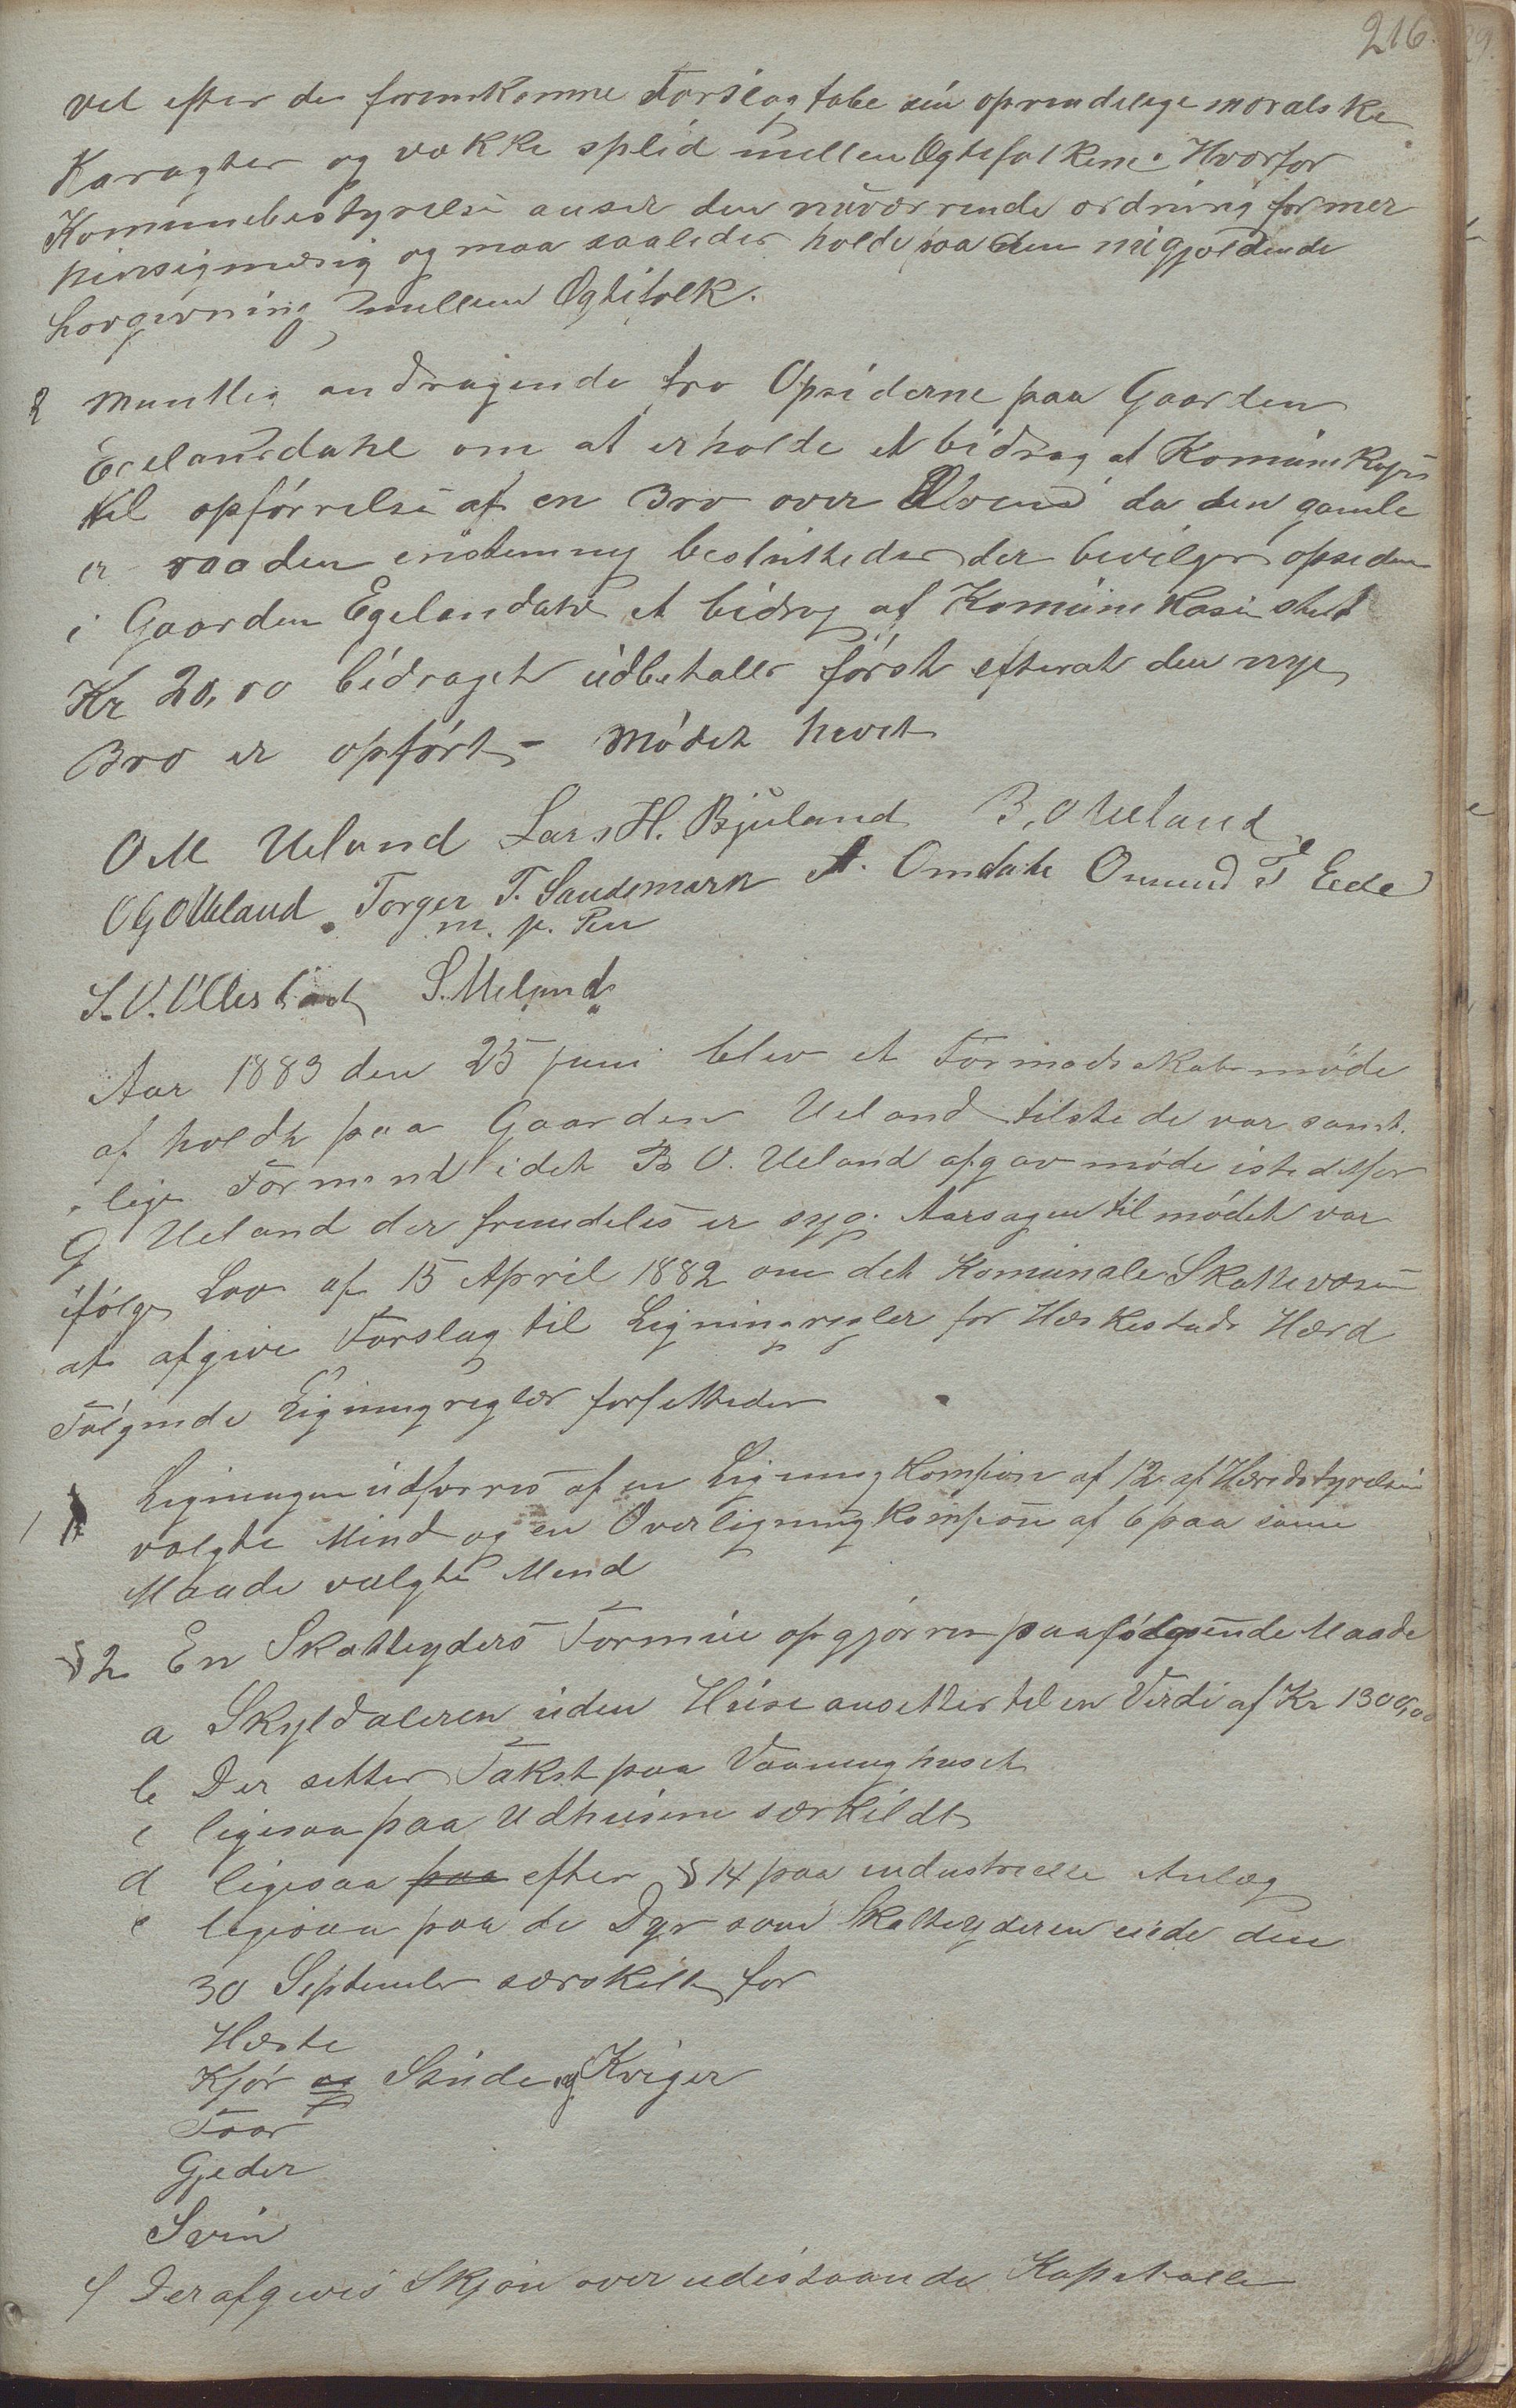 216.
vel efter de fremkomne Forslag tabe sin oprindelige moralske
Karagter og vække splid mellem Ægtefolkene. Hvorfor
Komunebestyrelse anser den nuværrende ordning for mer
hinsigmæsig og maa saaledes holde paa den nugjældende
lovgivning mellem Ægtefolk.
2 Muntlig andragende fra Opsiderne paa Gaarden
Egelandsdahl om at erholde et bidrag af Komunekass
til opførrelse af en Bro over Elven da den gamle
er raaden enstemmig besluttedes der bevilges opsidern
i Gaarden Egelandsdahl et bidrag af Komune kasse stort
Kr 20,00 bidraget udbetalles først efterat den nye
Bro er opført - Mødet hevet
O M Ueland Lars H. Bjuland B. O Ueland
O G O Ueland Torger T. Sandsmark A. Omdahl Omund T Eede
m. p. Pen
S. V. Ollestad S. Ueland
Aar 1883 den 25 juni blev et Formadskabsmøde
afholdt paa Gaarden Ueland tilstede var samt-
lige Formend idet B O. Ueland afgav møde istedetfor
G Ueland der fremdeles er syg. Aarsagen til mødet var
ifølge Lov af 15 April 1882 om det Komunale Skattevæsen
at afgive Forslag til Ligningsregler for Heskestads Herd
Følgende Ligningregler forfattedes
§ 1 Ligningen udførres af en Ligning Komision af 12 af Heredstyrelsen
valgte Mend og en Overligningkomision af 6 paa samme
Maade valgte Mend
§ 2 En Skatteyders Formue opgjørres paa følgende Maade
a Skyldaleren uden Huse ansettes til en Verdi af Kr 1300,00
b Der settes Takst paa Vaaninghuset
c ligesaa paa Udhusene særkildt
d ligesaa paa efter § 14 paa industrielle Anlæg
e ligesaa paa de Dyr som Skatteyderen eiede den
30 September særskilt for
Heste
Kjør og Stude og Kviger
Faar
Gjeder
Svin
f Der afgives Skjøn over udestaaende Kapitaller